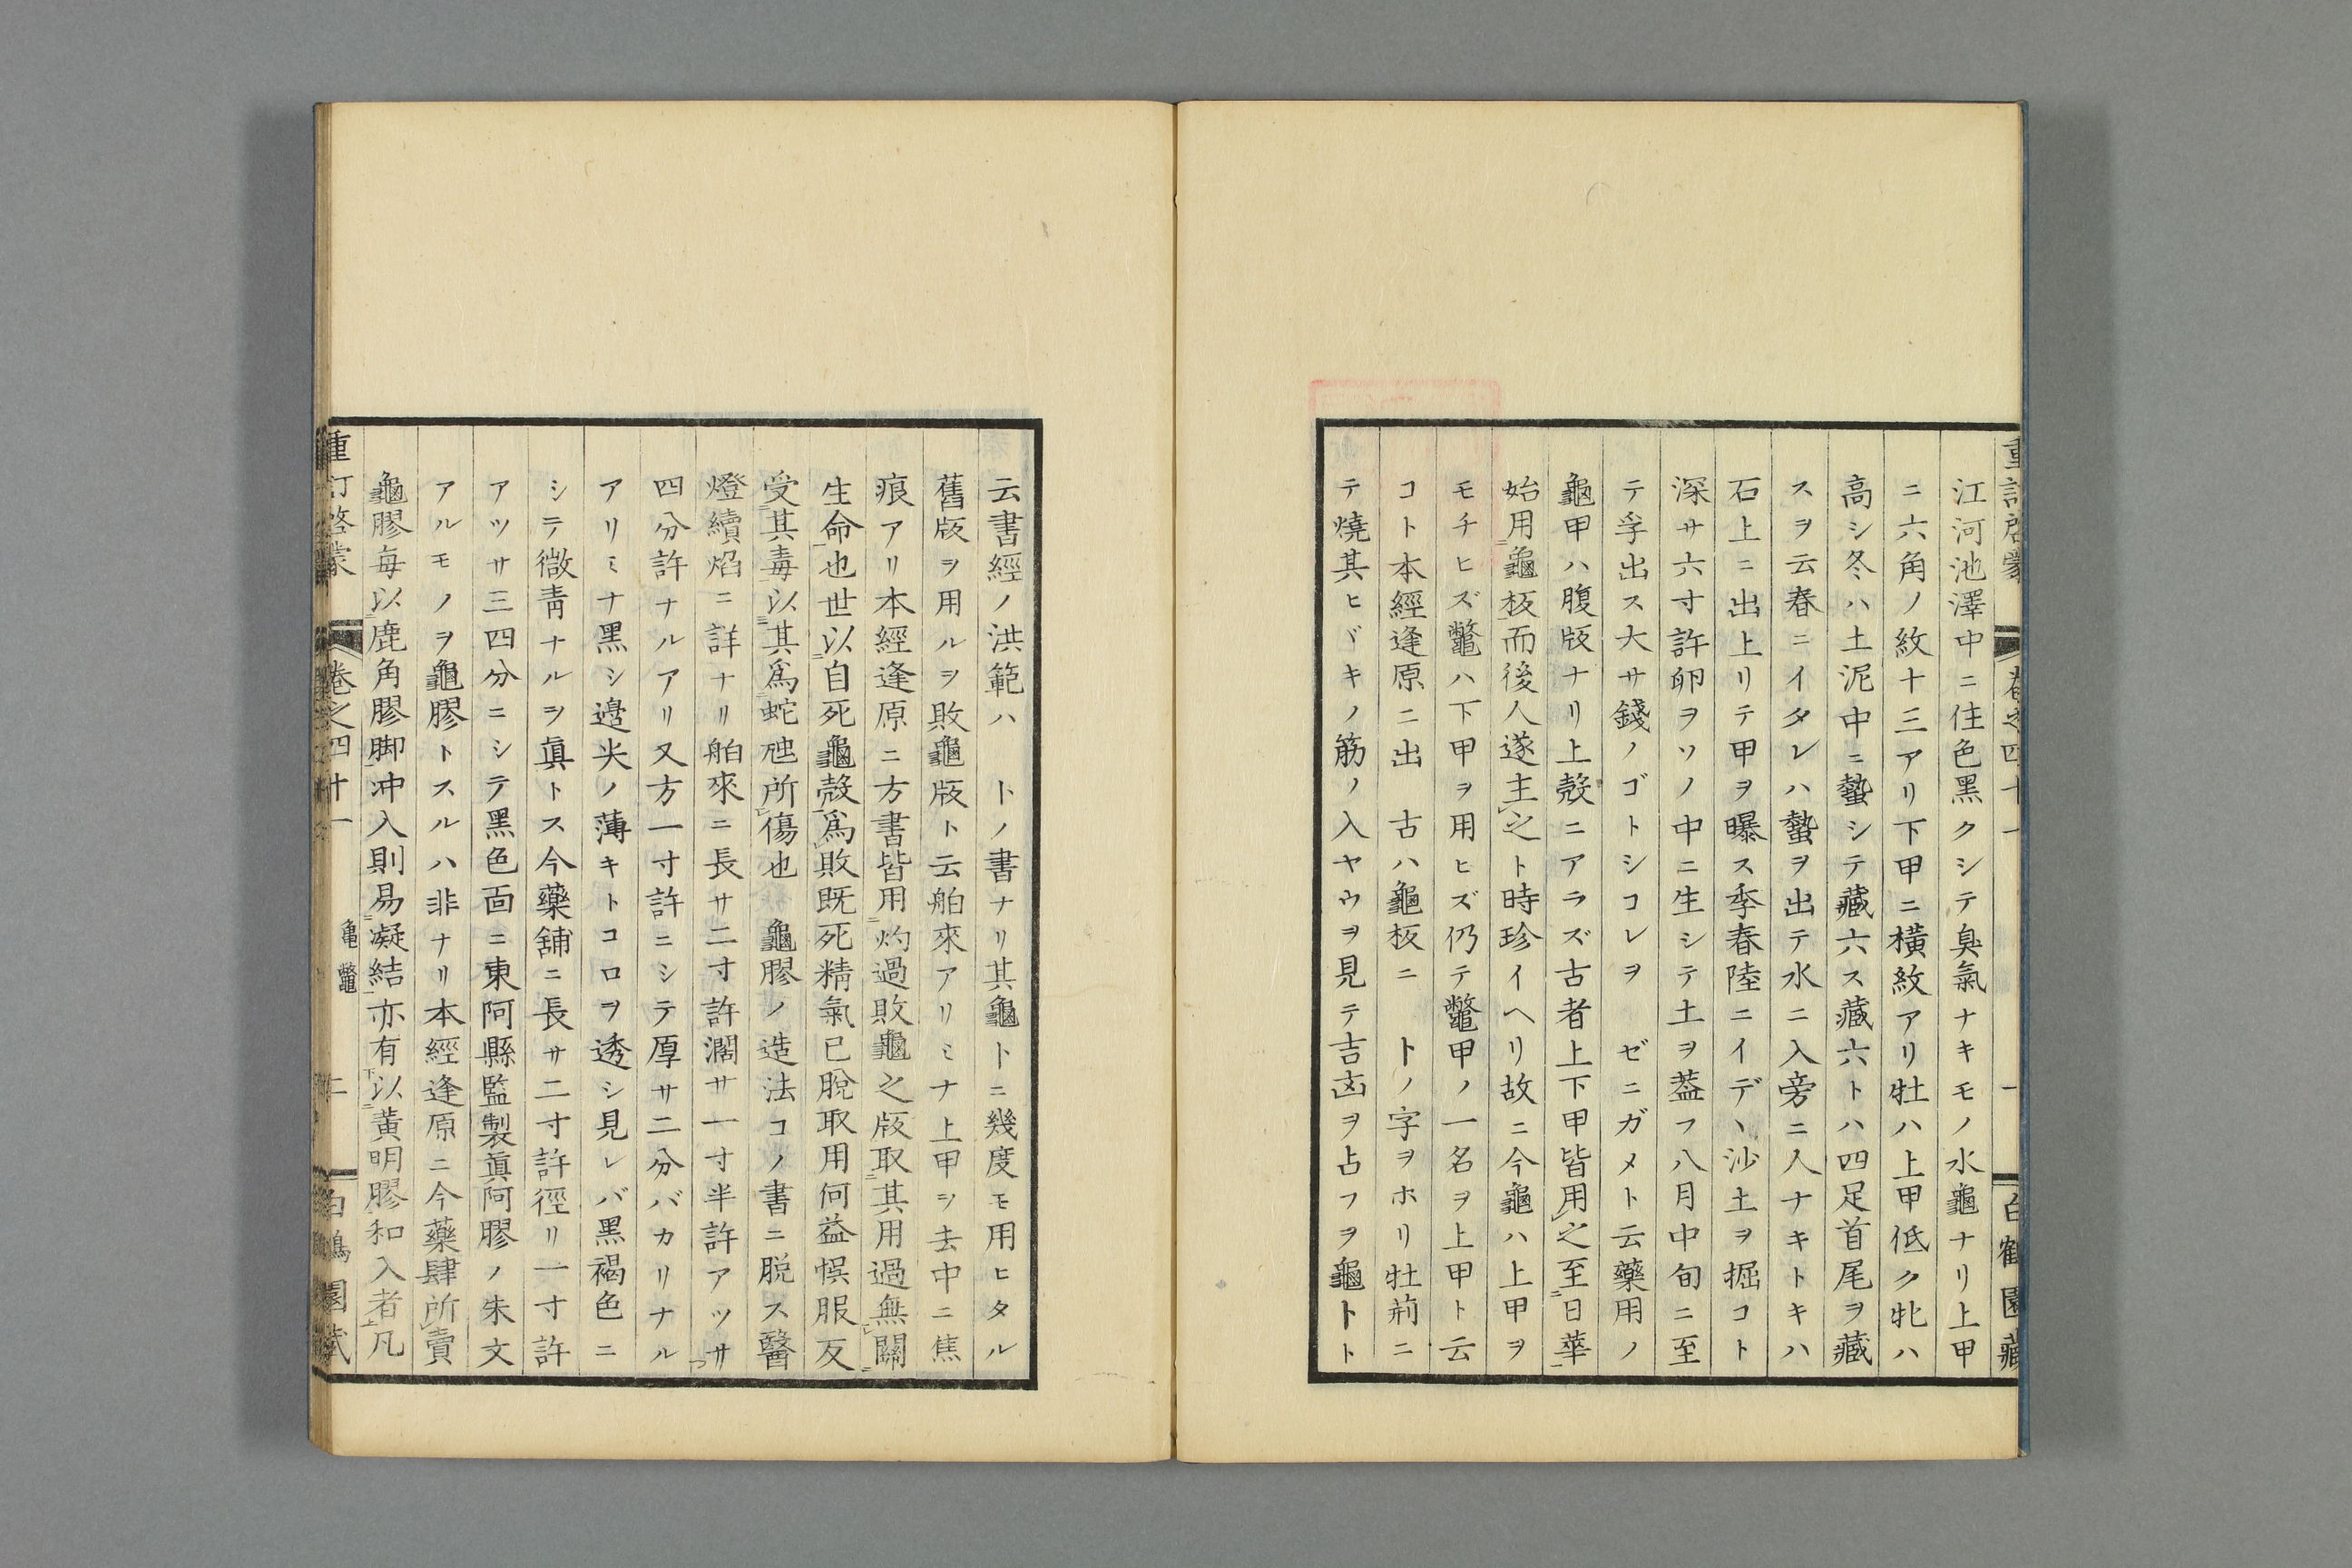 江河池澤中ニ住色黑クシテ臭氣ナキモノ水龜ナリ上甲
ニ六角ノ紋十三アリ下甲ニ橫紋アリ牡ハ上甲低ク牝ハ
高シ冬ハ土泥中ニ蟄シテ藏六ス藏六トハ四足首尾ヲ藏
スヲ云春ニイタレハ蟄ヲ出テ水ニ入旁ニ人ナキトキハ
石上ニ出上リテ甲ヲ曝ス季春陸ニイデヽ沙土ヲ掘コト
深サ六寸許卵ヲソノ中ニ生シテ土ヲ葢フ八月中旬ニ至
テ孚出ス大サ錢ノゴトシコレヲ ゼニガメト云藥用ノ
龜甲ハ腹版ナリ上殼ニアラズ古者上下甲皆用之至日華
始用龜板而後人遂主之ト時珍イヘリ故ニ今龜ハ上甲ヲ
モチヒズ鼈ハ下甲ヲ用ヒズ仍テ鼈甲ノ一名ヲ上甲ト云
コト本經逢原ニ出 古ハ龜板ニ トノ字ヲホリ牡荊ニ
テ燒其ヒヾキノ筋ノ入ヤウヲ見テ吉凶ヲ占フヲ龜トト
云書經ノ洪範ハ トノ書ナリ其龜トニ幾度モ用ヒタル
舊版ヲ用ルヲ敗龜版ト云舶來アリミナ上甲ヲ去中ニ焦
痕アリ本經逢原ニ方書皆用灼過敗龜之版取其用過無關
生命也世以自死龜殼爲敗既死精氣已脫取用何益悞服反
受其毒以其爲蛇虺所傷也 龜膠ノ造法コノ書ニ脱ス醫
燈續焰ニ詳ナリ舶來ニ長サ二寸許濶サ一寸半許アツサ
四分許ナルアリ又方一寸許ニシテ厚サ二分バカリナル
アリミナ黑シ邉尖ノ薄キトコロヲ透シ見レバ黑褐色ニ
シテ微靑ナルヲ眞トス今藥舖ニ長サ二寸許徑リ一寸許
アツサ三四分ニシテ黑色面ニ東阿縣監製眞阿膠ノ朱文
アルモノヲ龜膠トスルハ非ナリ本經逢原ニ今藥肆所賣
龜膠每以鹿角膠脚冲入則易凝結亦有以黃明膠和入者凡
重訂啓蒙 卷之四十一 龜鼈 二